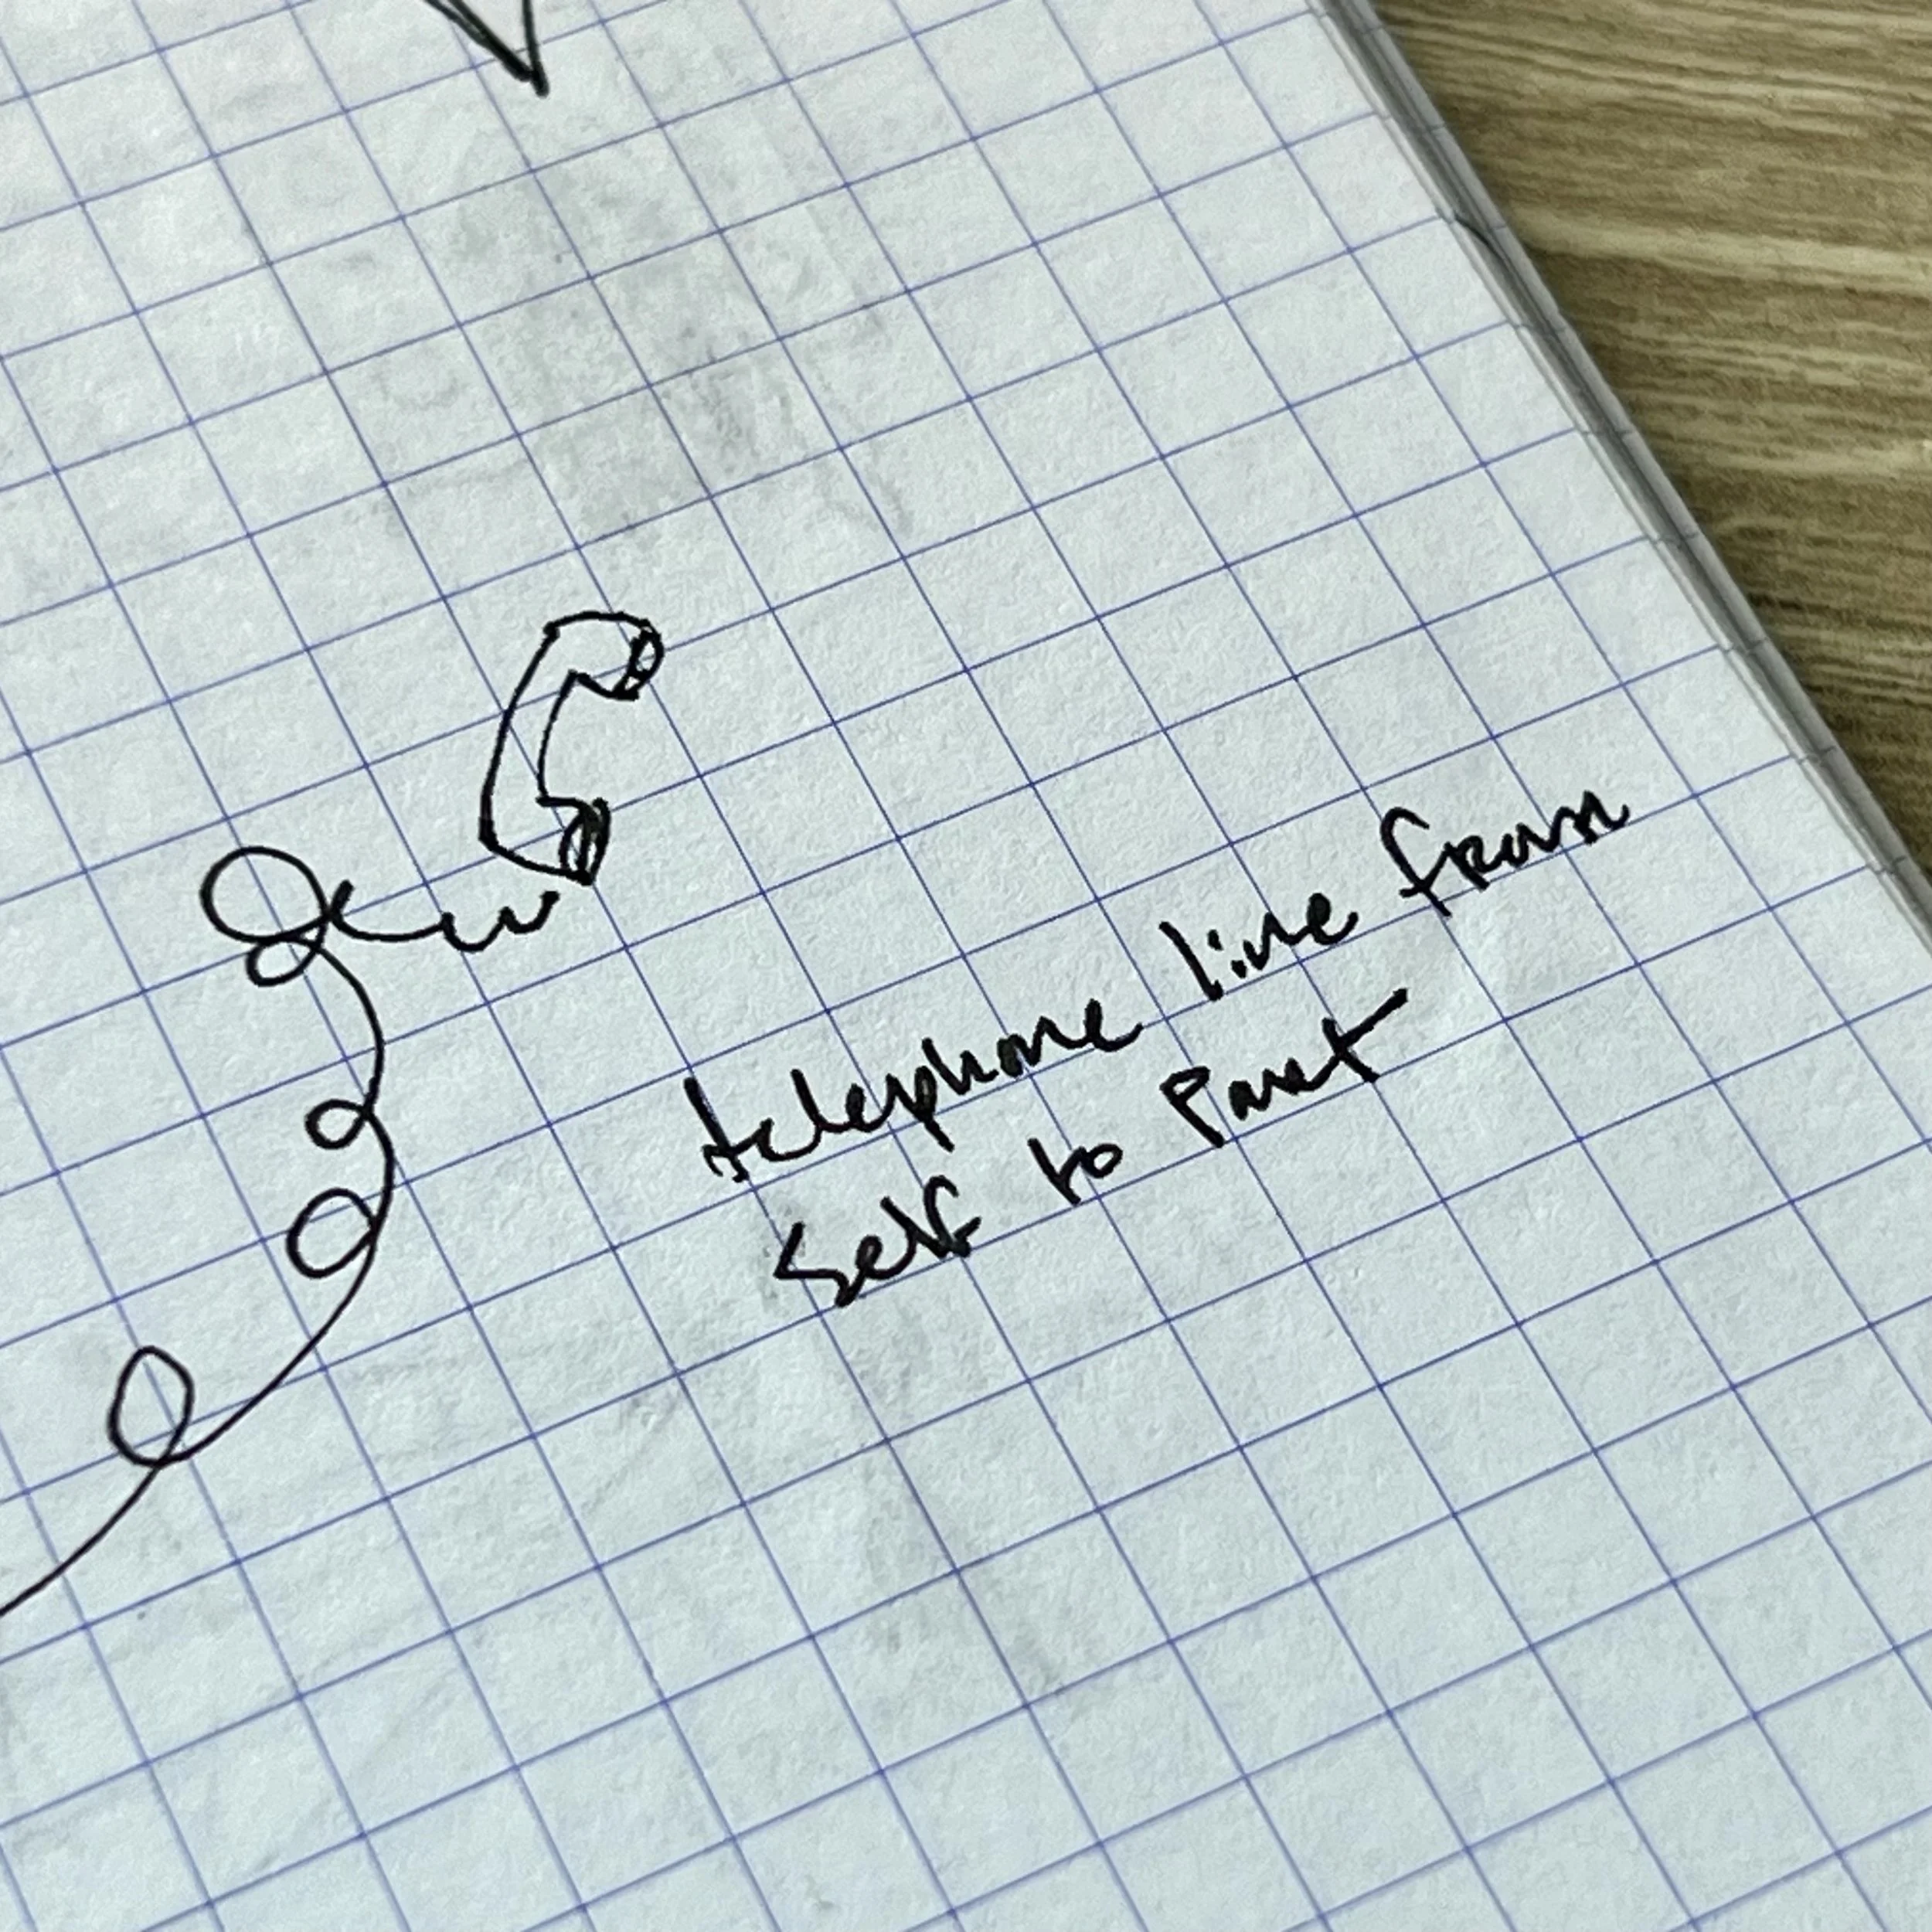 telephone line from
self to Part